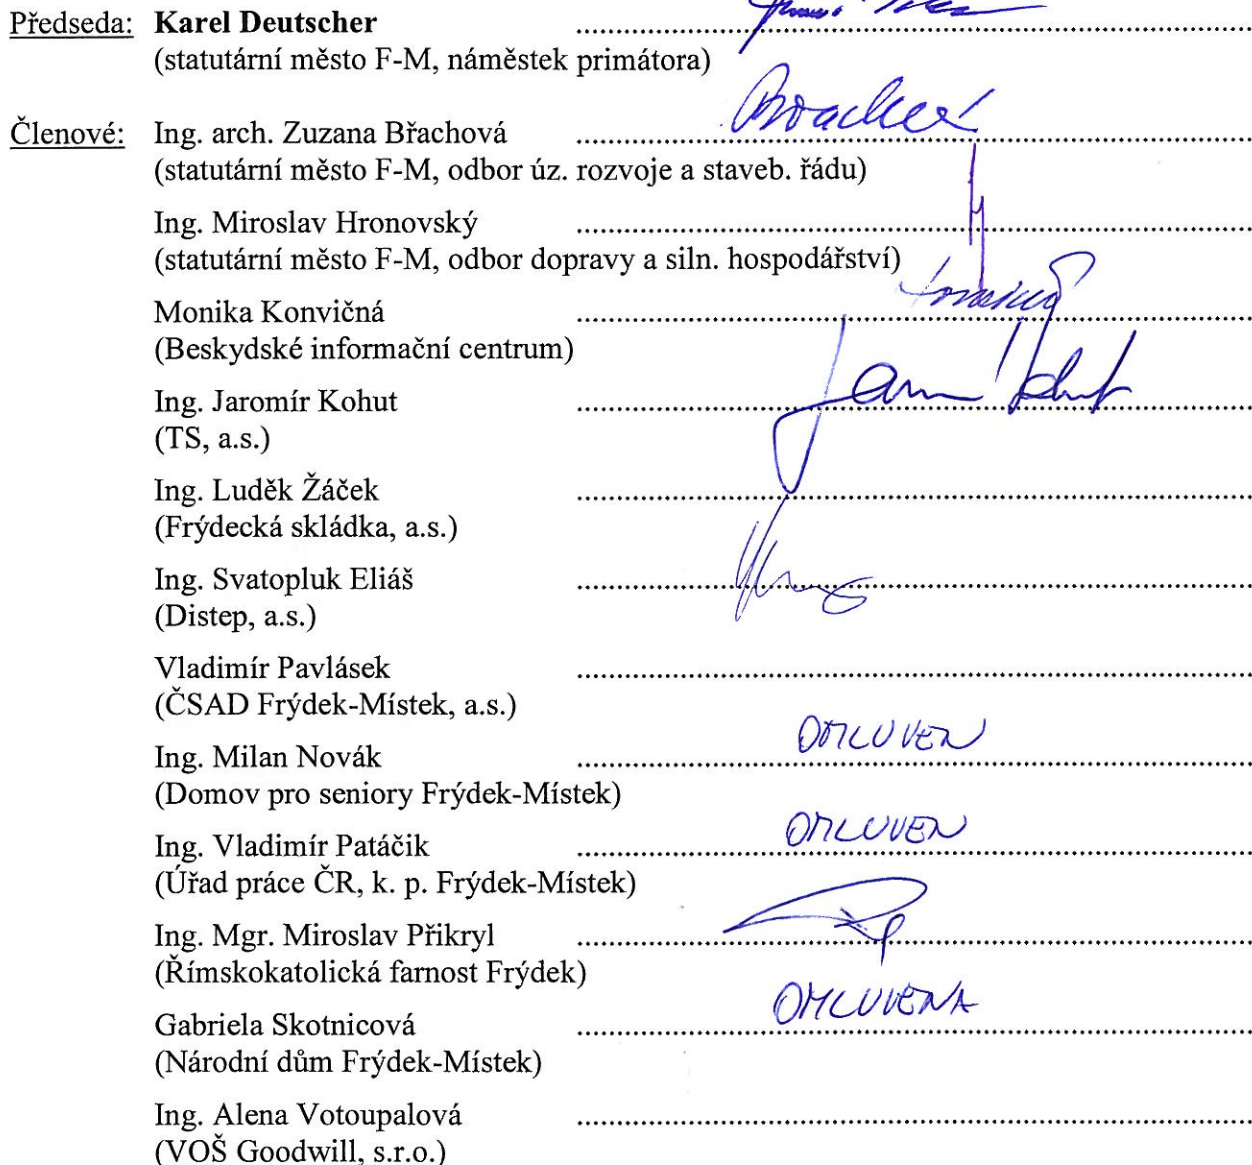 Předseda: Karel Deutscher ........................
(statutární město F-M, náměstek primátora)
Členové: Ing. arch. Zuzana Břachová ........................
(statutární město F-M, odbor úz. rozvoje a staveb. řádu)
Ing. Miroslav Hronovský ........................
(statutární město F-M, odbor dopravy a siln. hospodářství)
Monika Konvičná ........................
(Beskydské informační centrum)
Ing. Jaromír Kohut ........................
(TS, a.s.)
Ing. Luděk Žáček ........................
(Frýdecká skládka, a.s.)
Ing. Svatopluk Eliáš ........................
(Distep, a.s.)
Vladimír Pavlásek ........................
(ČSAD Frýdek-Místek, a.s.)
Ing. Milan Novák ........................ OMLUVEN
(Domov pro seniory Frýdek-Místek)
Ing. Vladimír Patáčik ........................ OMLUVEN
(Úřad práce ČR, k. p. Frýdek-Místek)
Ing. Mgr. Miroslav Přikryl ........................
(Římskokatolická farnost Frýdek)
Gabriela Skotnicová ........................ OMLUVENA
(Národní dům Frýdek-Místek)
Ing. Alena Votoupalová ........................
(VOŠ Goodwill, s.r.o.)